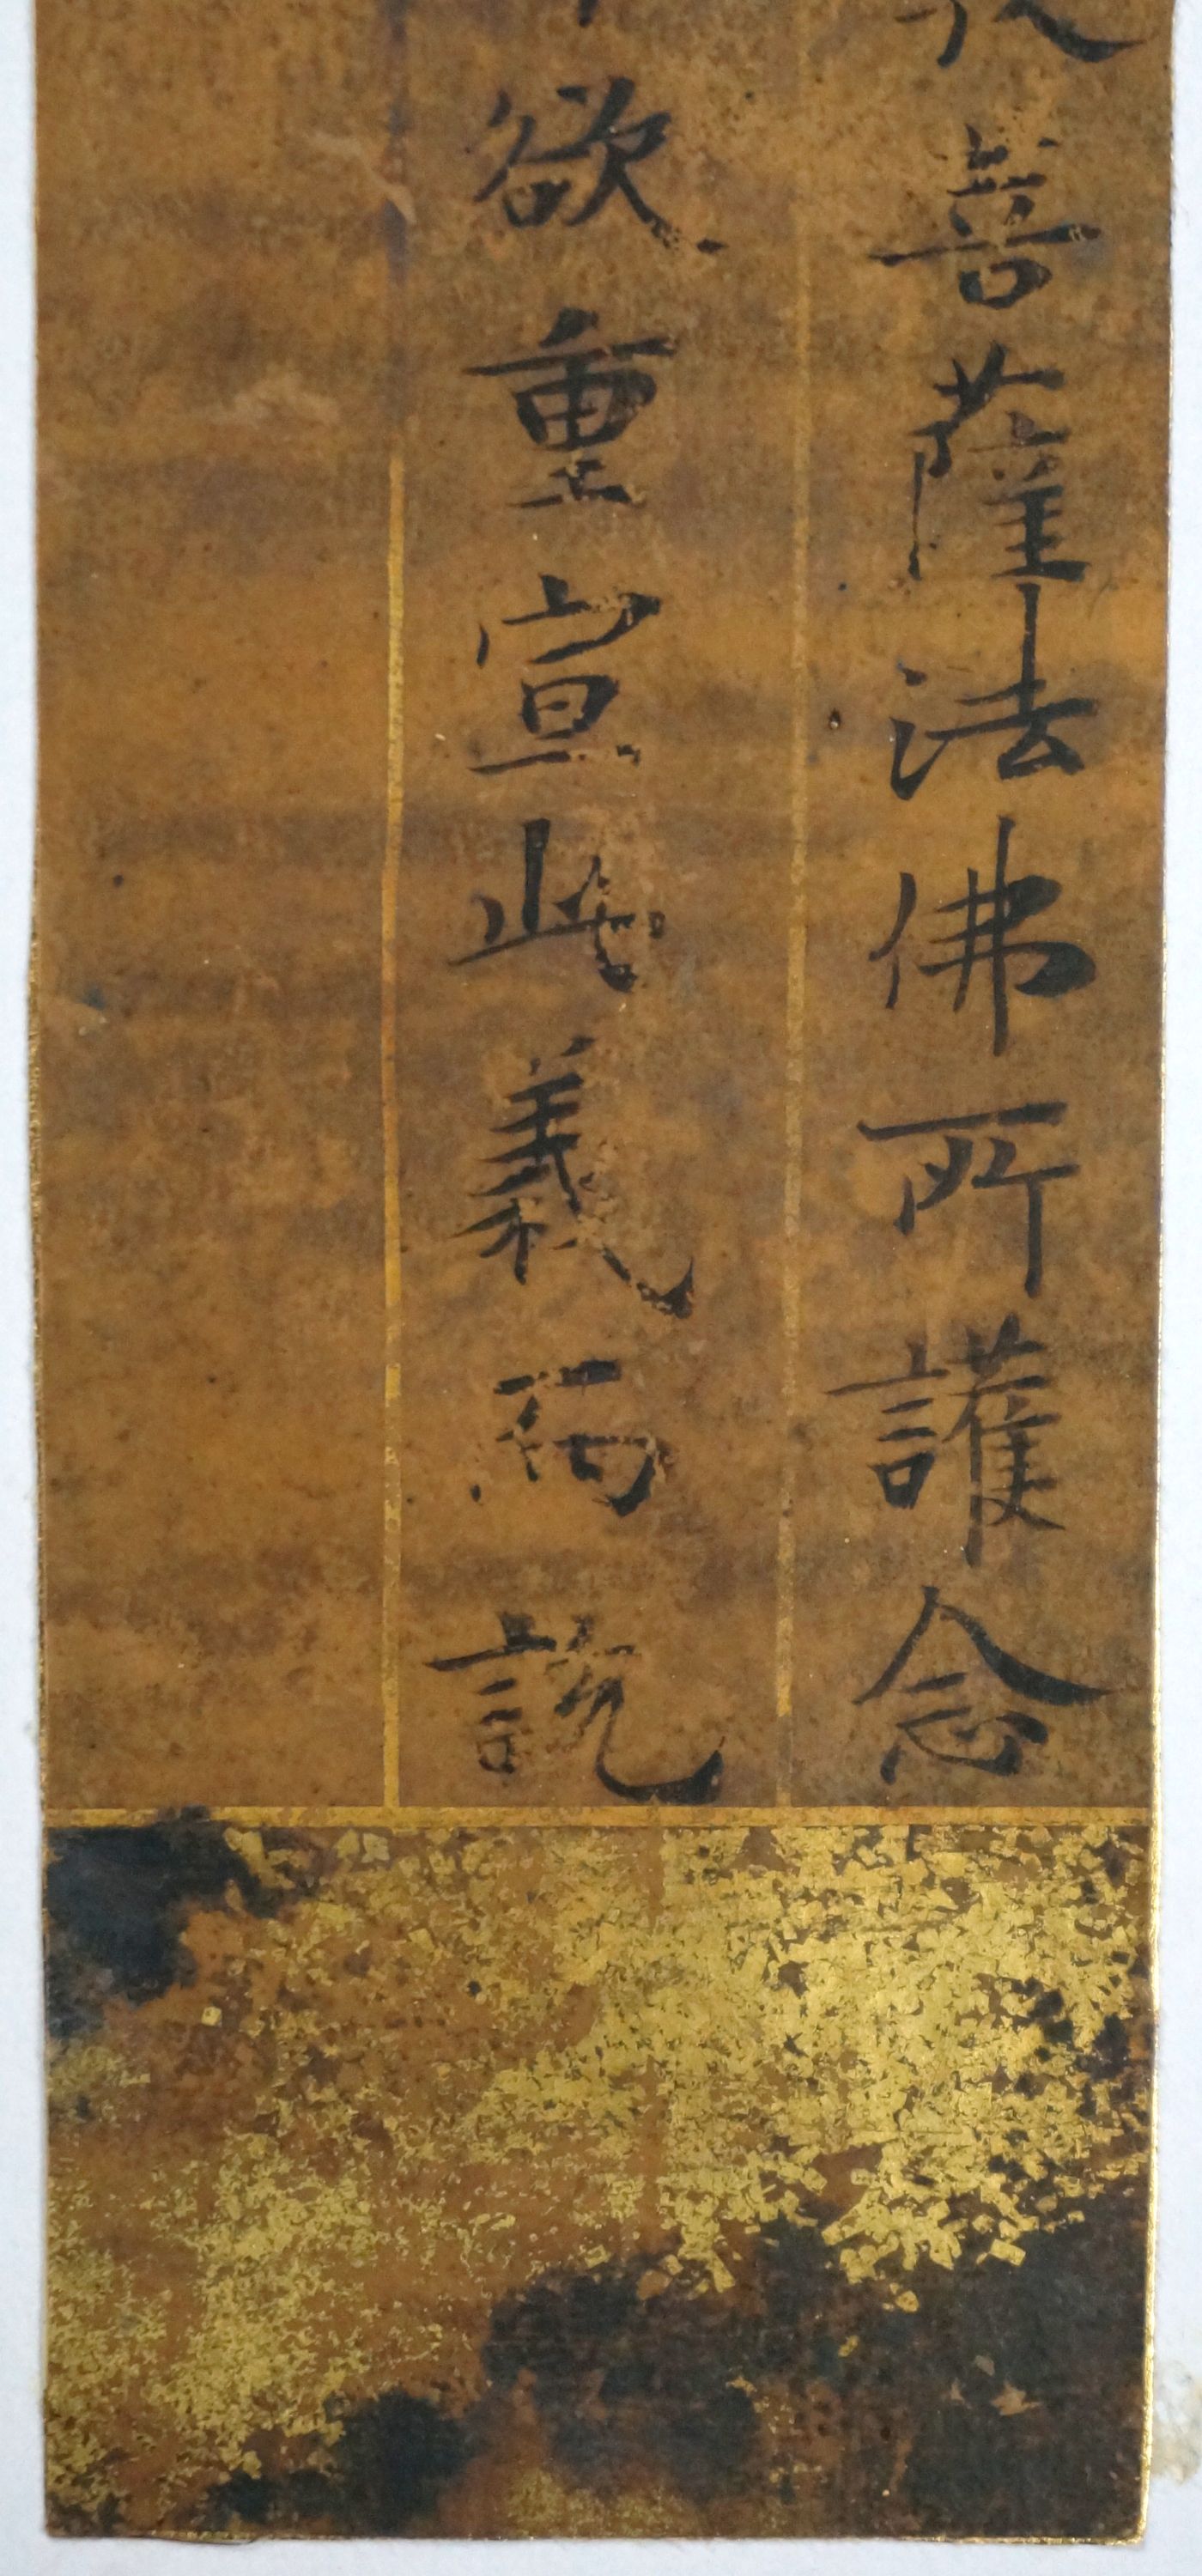 菩薩法佛所護念
欲重宣此義而說